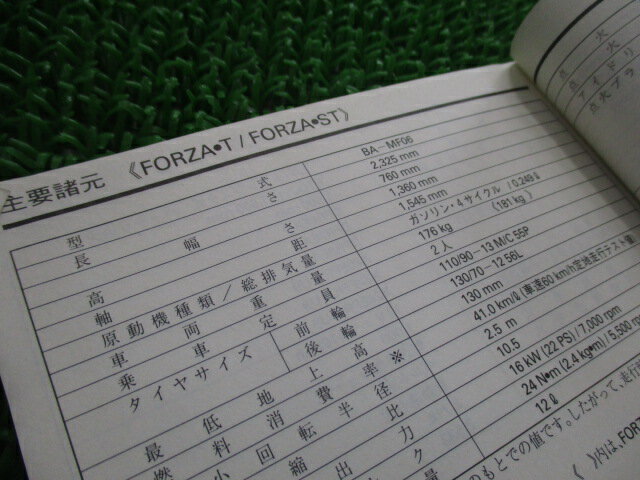 主要諸元 《FORZA•T / FORZA•ST》
型 式 BA－MF06
長 さ 2,325 mm
幅 760 mm
高 さ 1,360 mm
軸 距 1,545 mm
原動機種類／総排気量 ガソリン・4サイクル / 0.249ℓ
車 両 重 量 176 kg 《181 kg》
乗 車 定 員 2人
タイヤサイズ 前輪 110/90－13 M/C 55P
後輪 130/70－12 56L
最 低 地 上 高 130 mm
燃 料 消 費 率 ※ 41.0 km/ℓ (車速60 km/h定地走行テスト値)
小 回 転 半 径 2.5 m
縮 比 10.5
出 力 16 kW (22 PS) / 7,000 rpm
ク 24 N•m (2.4 kg•m) / 5,500 rpm
量 12ℓ
のもとでの値です。したがって、走行
《 》内は、FOR
点 火
点 火
アイドリ
点火プラ